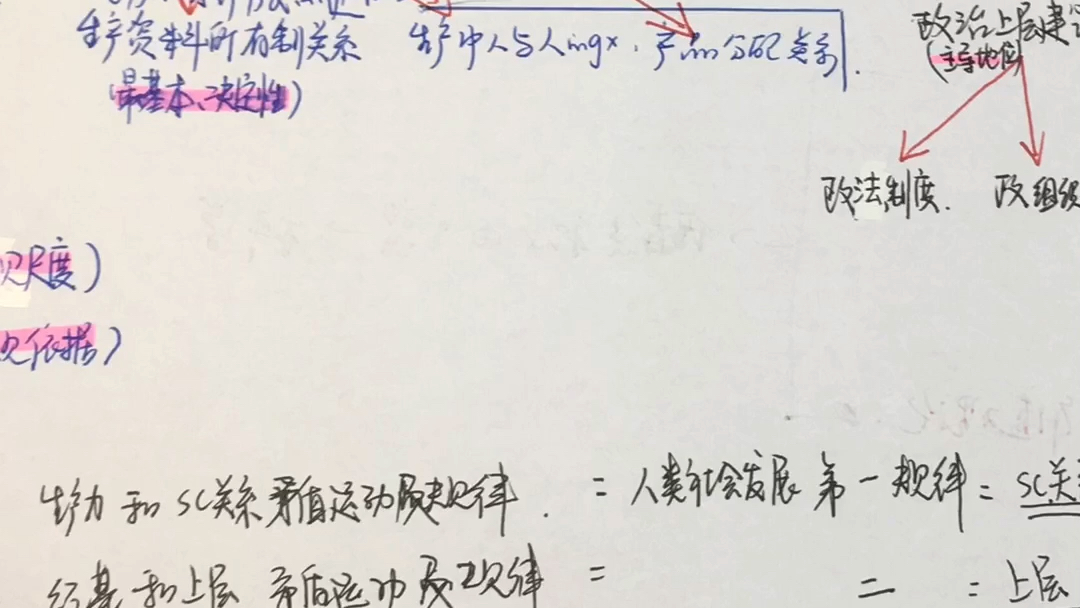 生产资料所有制关系 生产中人与人的gx、产品分配关系
(最基本、决定性)
政治上层建
(主导地位)
政法制度、 政组织
尺度)
依据)
生产力 和 SC关系 矛盾运动及其规律 = 人类社会发展 第一规律 = SC关
经基 和上层 矛盾运动及其规律 = 二 = 上层